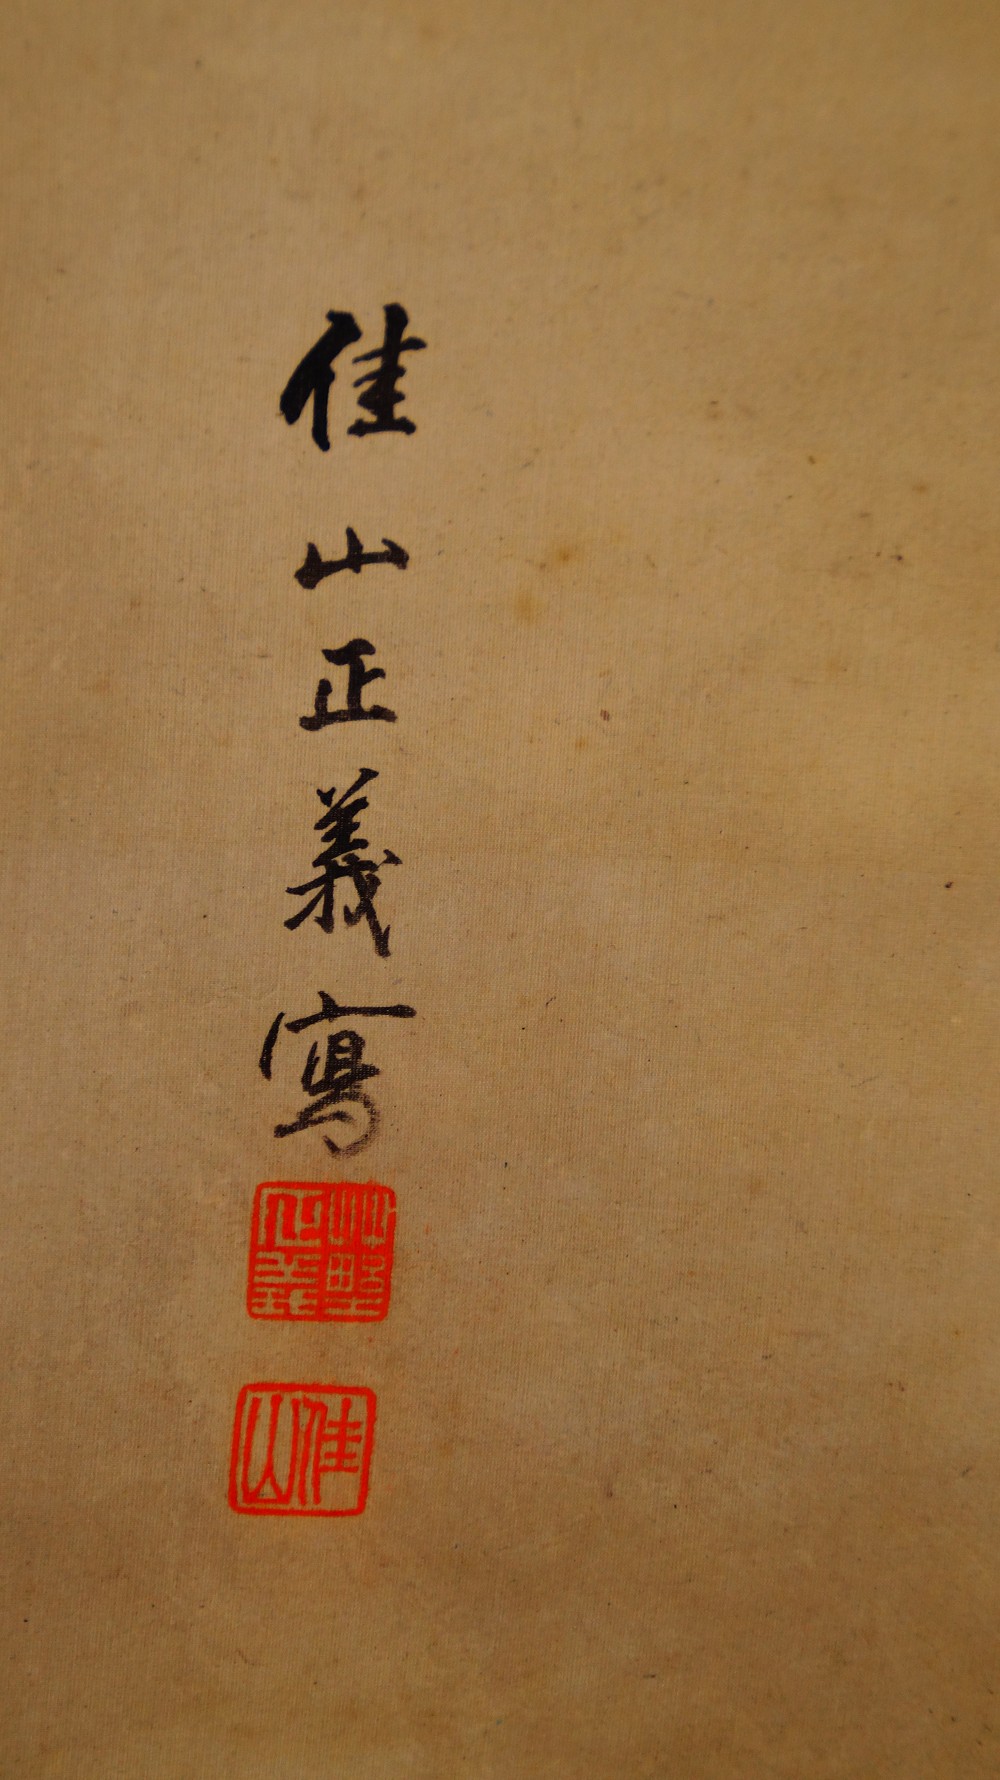 佳山正義寫
佳山